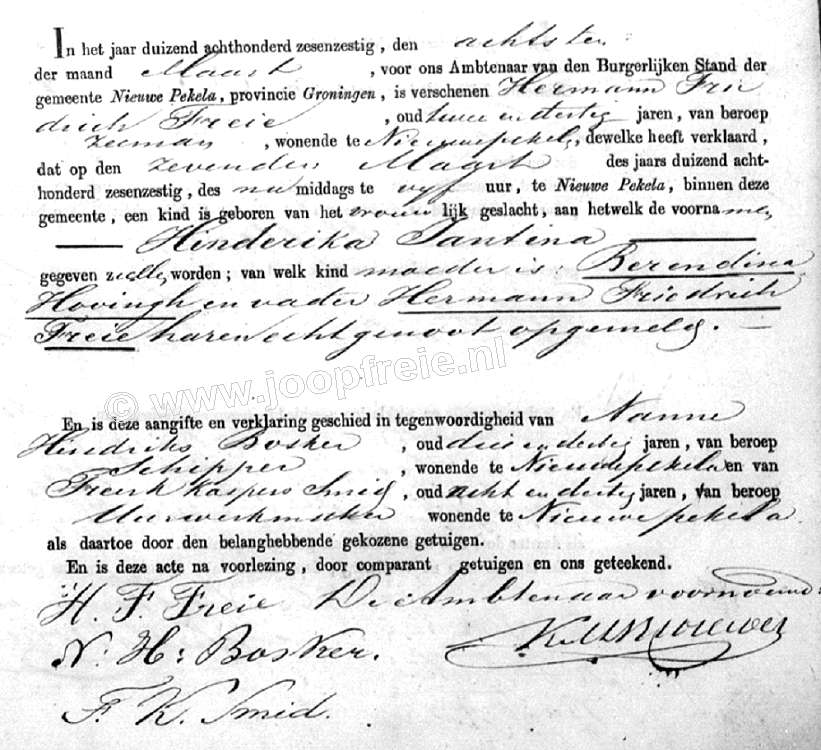 In het jaar duizend achthonderd zesenzestig, den achtsten
der maand Maart, voor ons Ambtenaar van den Burgerlijken Stand der
gemeente Nieuwe Pekela, provincie Groningen, is verschenen Hermann Frie
drich Freie, oud twee en dertig jaren, van beroep
zeeman, wonende te Nieuwepekela, dewelke heeft verklaard,
dat op den zevenden Maart des jaars duizend acht-
honderd zesenzestig, des na middags te vyf uur, te Nieuwe Pekela, binnen deze
gemeente, een kind is geboren van het vrouw lijk geslacht, aan hetwelk de voorna men
Hinderika Jantina
gegeven zulle worden; van welk kind moeder is: Berendina
Hovingh en vader Hermann Friedrich
Freie haren echtgenoot opgemeld.
© www.joopfreie.nl
En is deze aangifte en verklaring geschied in tegenwoordigheid van Nanne
Hindriks Bosker, oud drie en dertig jaren, van beroep
Schipper, wonende te Nieuwepekela en van
Freerk Kaspers Smid, oud acht en dertig jaren, van beroep
Uurwerkmaker wonende te Nieuwepekela
als daartoe door den belanghebbende gekozene getuigen.
En is deze acte na voorlezing, door comparant getuigen en ons geteekend.
H. F. Freie De Ambtenaar voornoemd:
N. H: Bosker.
F. K. Smid.